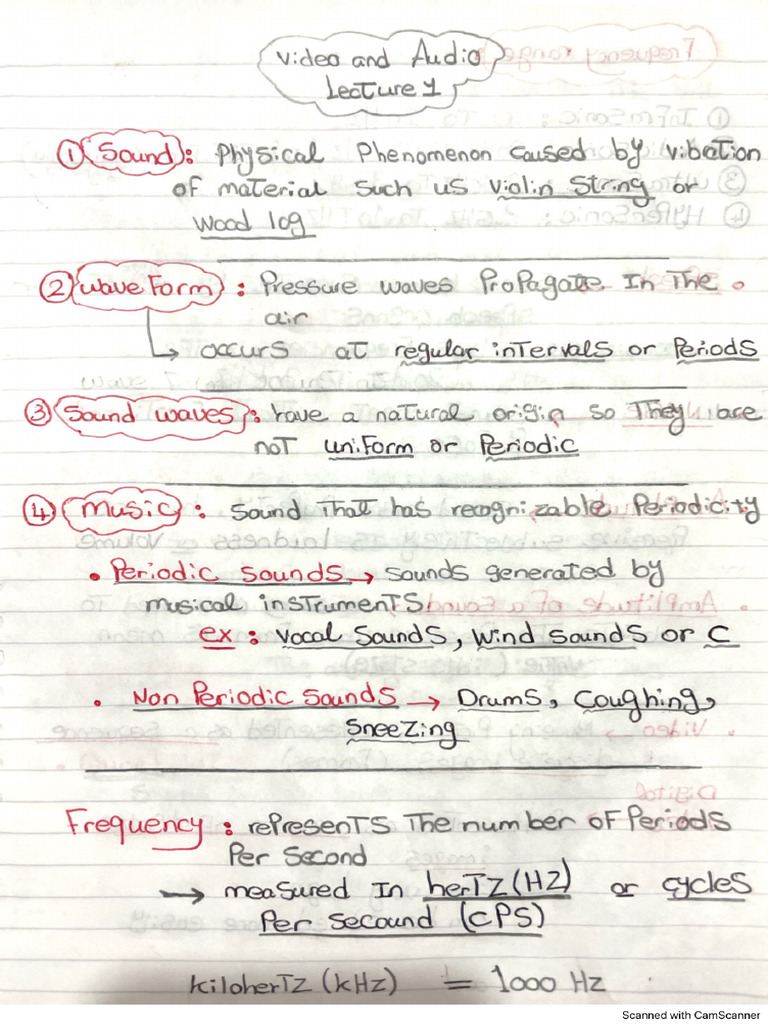 Video and Audio
Lecture 1
① Sound: Physical Phenomenon caused by vibation
of material such us violin String or
wood log
② wave Form: Pressure waves Propagate In The
air
↳ occurs at regular intervals or Periods
③ Sound waves: have a natural origin so They are
not uniform or Periodic
④ music: Sound That has recognizable Periodicity
• Periodic sounds → sounds generated by
musical instruments
ex: vocal Sounds, wind sounds or C
• Non Periodic sounds → Drums, Coughing,
Sneezing
Frequency: represents The number of Periods
Per Second
→ measured In hertz (HZ) or cycles
Per Secound (CPS)
kilohertz (kHz) = 1000 Hz
Scanned with CamScanner